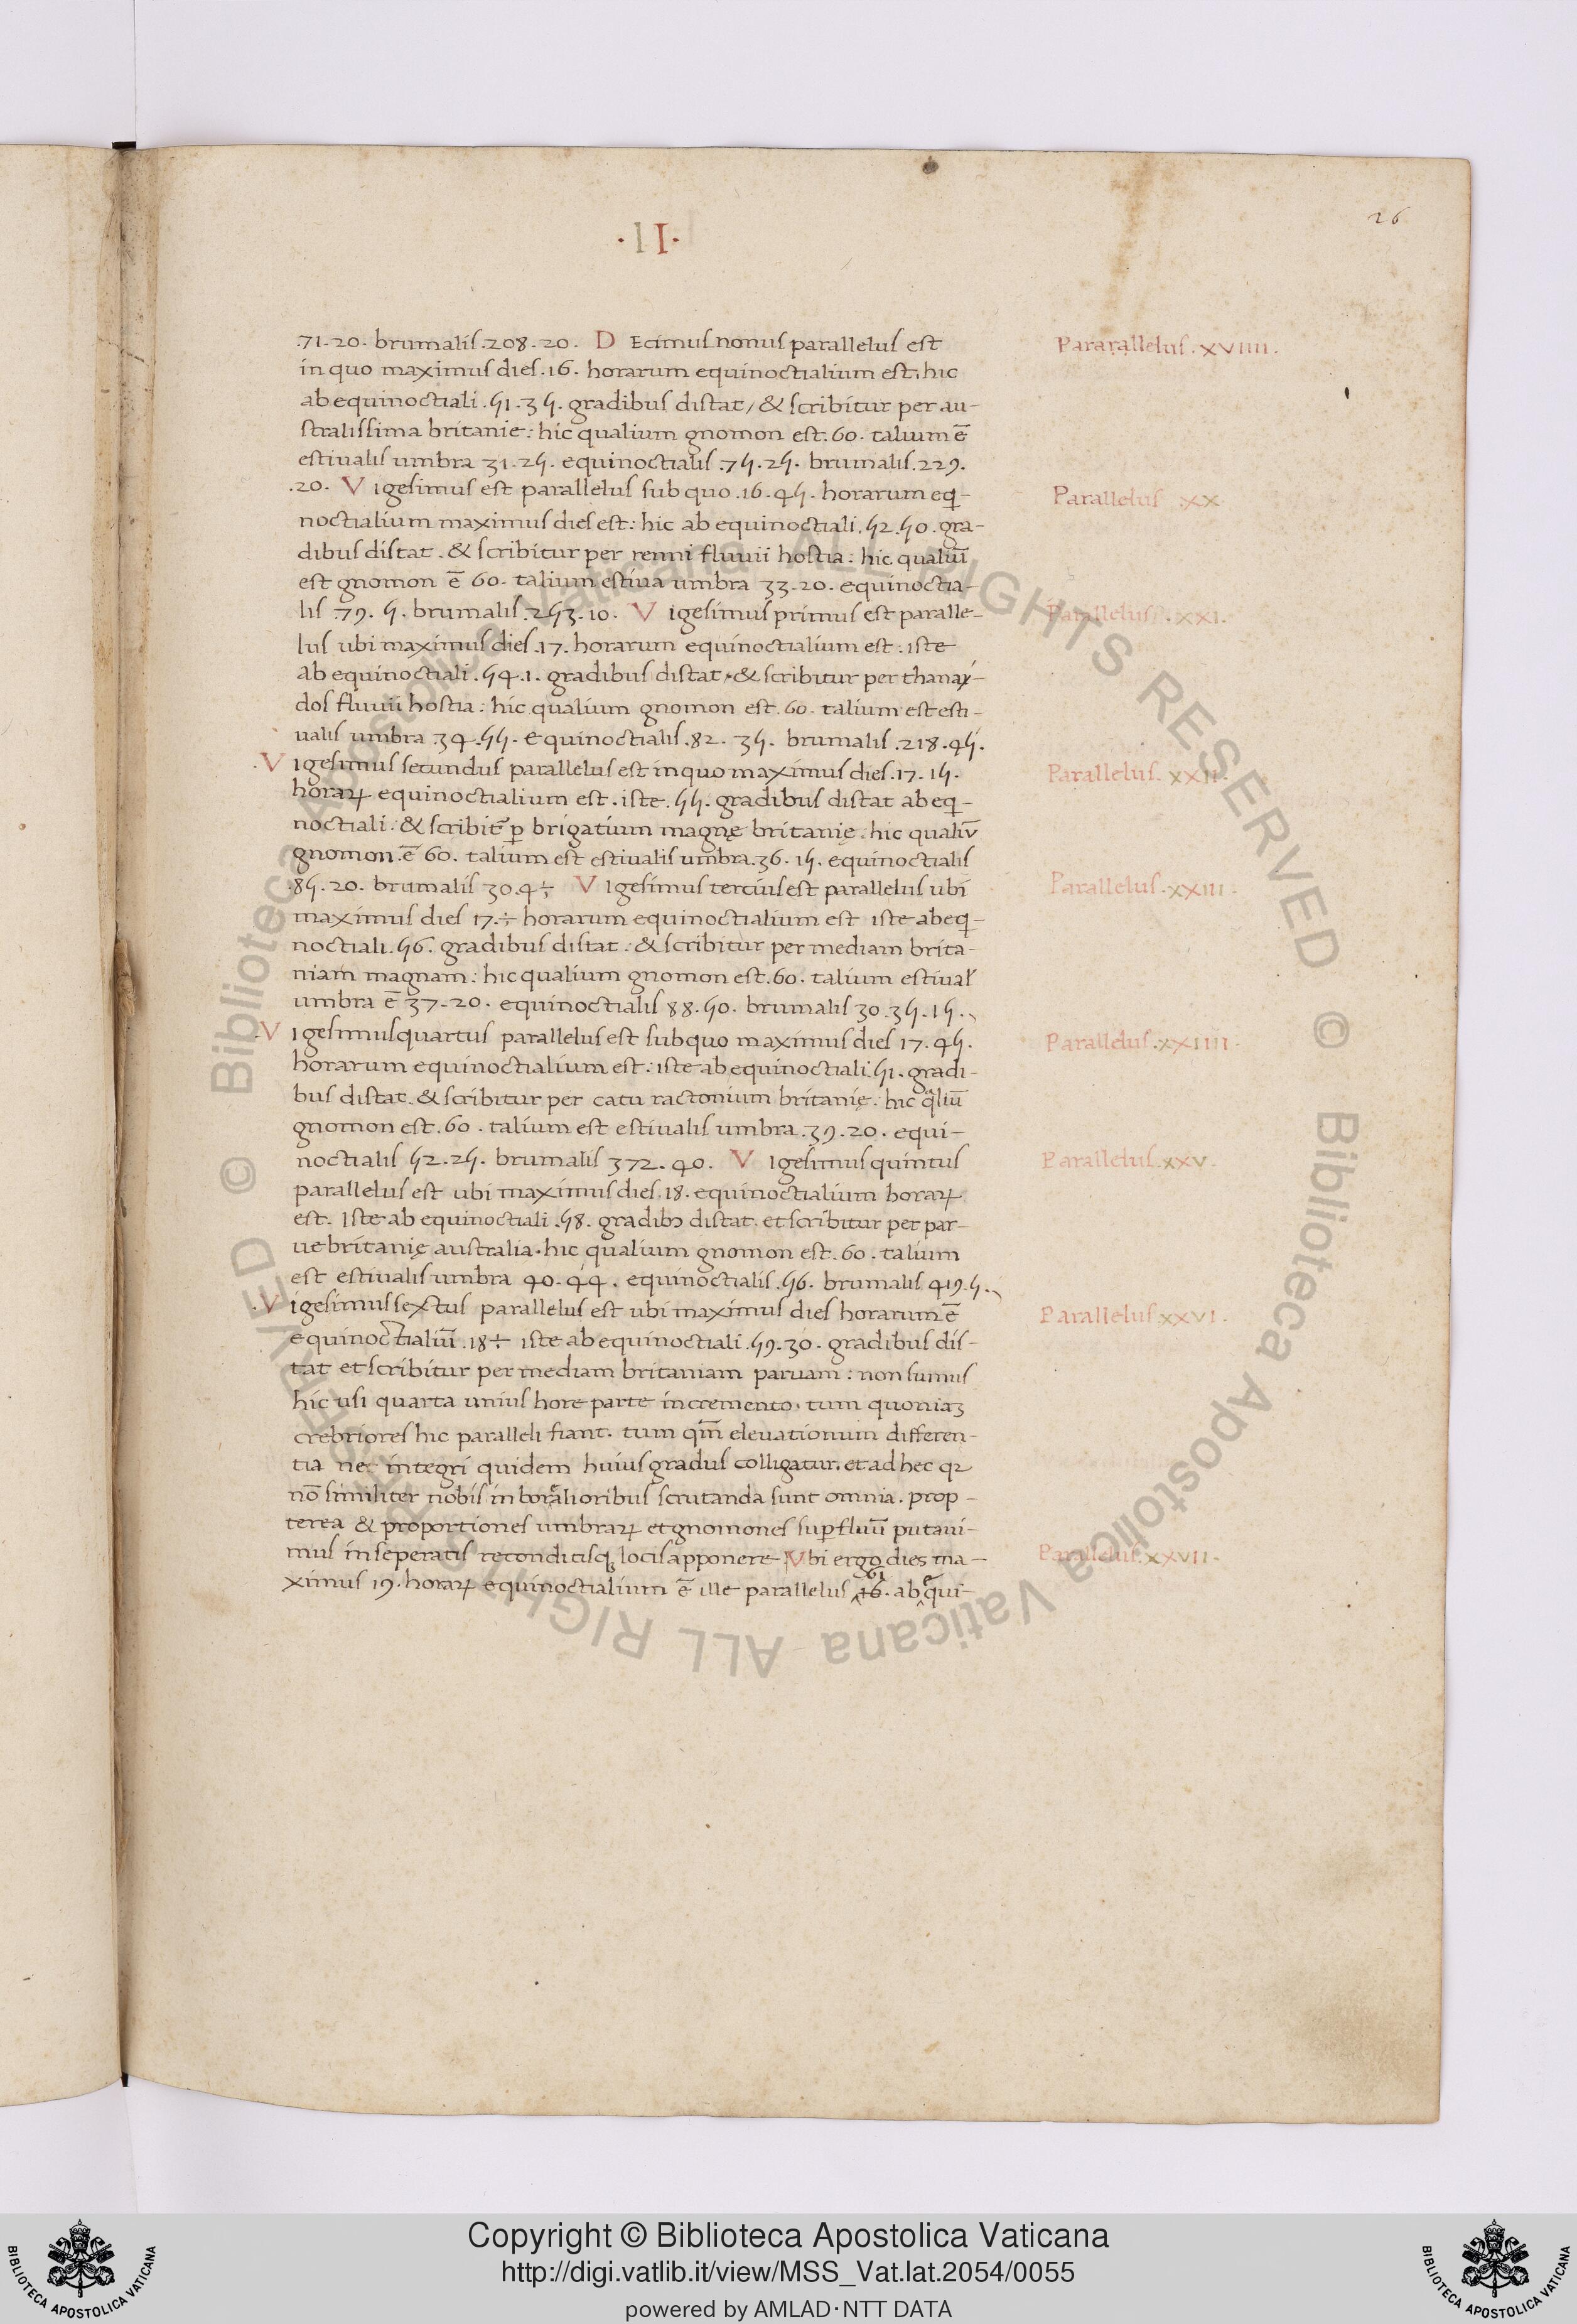 ·II·
26
.71.20. brumalis .208.20. DEcimus nonus parallelus est
Pararallelus .XVIIII.
in quo maximus dies .16. horarum equinoctialium est. hic
ab equinoctiali .51.35. gradibus distat / & scribitur per au-
stralissima britanie: hic qualium gnomon est .60. talium ē
estiualis umbra 31.25. equinoctialis .75.25. brumalis .229.
.20. Vigesimus est parallelus sub quo .16.45. horarum eq̱i-
Parallelus .XX.
noctialium maximus dies est: hic ab equinoctiali .52.50. gra-
dibus distat. & scribitur per renni fluuii hostia: hic qualiū
est gnomon ē 60. talium estiua umbra 33.20. equinoctia-
lis .79.5. brumalis .253.10. Vigesimus primus est paralle-
Parallelus .XXI.
lus ubi maximus dies .17. horarum equinoctialium est. iste
ab equinoctiali .54.1. gradibus distat. & scribitur per thanai-
dos fluuii hostia: hic qualium gnomon est .60. talium est esti-
ualis umbra 34.55. equinoctialis .82.35. brumalis .218.45.
Vigesimus secundus parallelus est in quo maximus dies .17.15.
Parallelus .XXII.
horaꝝ equinoctialium est. iste .55. gradibus distat ab eq̱i-
noctiali: & scribit᷑ ꝑ brigatium magnę britanię. hic qualiū
gnomon ē 60. talium est estiualis umbra .36.15. equinoctialis
.85.20. brumalis 30.4÷ Vigesimus tercius est parallelus ubi
Parallelus .XXIII.
maximus dies 17.÷ horarum equinoctialium est iste ab eq̱i-
noctiali .56. gradibus distat: & scribitur per mediam brita-
niam magnam: hic qualium gnomon est .60. talium estiual̕
umbra ē 37.20. equinoctialis 88.50. brumalis 30.35.15.
Vigesimus quartus parallelus est sub quo maximus dies 17.45.
Parallelus .XXIIII.
horarum equinoctialium est: iste ab equinoctiali .51. gradi-
bus distat. & scribitur per catu ractonium britanię. hic q̃liū
gnomon est .60. talium est estiualis umbra .39.20. equi-
noctialis 52.25. brumalis 372.40. Vigesimus quintus
Parallelus .XXV.
parallelus est ubi maximus dies .18. equinoctialium horaꝝ
est. Iste ab equinoctiali .58. gradibꝫ distat. et scribitur per par-
ue britanię australia. hic qualium gnomon est .60. talium
est estiualis umbra 40.44. equinoctialis .56. brumalis 419.5.
Vigesimus sextus parallelus est ubi maximus dies horarum ē
Parallelus .XXVI.
equinoctialiū .18÷ iste ab equinoctiali .59.30. gradibus dis-
tat et scribitur per mediam britaniam paruam: non sumus
hic usi quarta unius hore parte incremento. tum quoniaꝫ
crebriores hic paralleli fiant. tum qm̄ eleuationum differen-
tia nec integri quidem huius gradus colligatur. et ad hec qꝛ
nō similiter nobis in borealioribus scrutanda sunt omnia. prop-
terea & proportiones umbraꝝ et gnomones suꝑfluū putaui-
mus in seperatis reconditisqꝫ locis apponere Vbi ergo dies ma-
Parallelus .XXVII.
ximus 19. horaꝝ equinoctialium ē ille parallelus 61 16. ab equi-